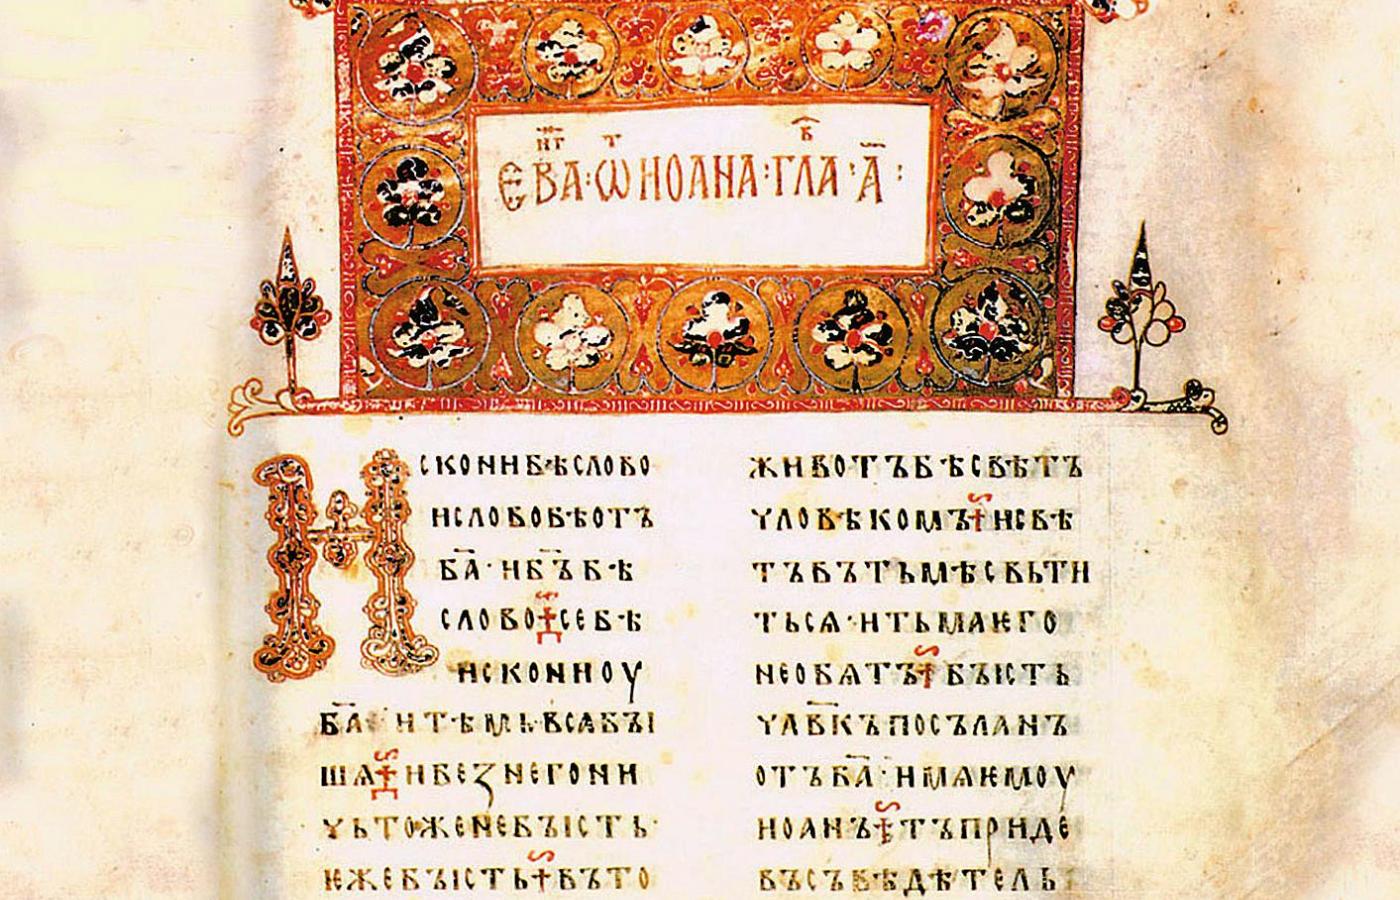 ЕВА҃НГ: Ѡт ИОАНА: ГЛА҃В · А҃ :
ИСКОНИБѢСЛОВО
ИСЛОВОБѢОТЪ
БА҃·ИБ҃ЪБѢ
СЛОВО СЕБѢ
ИСКОНИОУ
БА҃ ИТѢМЬВСѦБЪІ
ШѦ ИБЕꙀНЕГОНИ
ЧЬТОЖЕНЕБЪІСТЬ·
ѤЖЕБЪІСТЬ ВЪТО
ЖИВОТЪБѢСВѢТЪ
ЧЛОВѢКОМЪ ИСВѢ
ТЪВЪТЬМѢСВЬТИ
ТЬСѦ·ИТЬМАѤГО
НЕОБѦТЪ БЪІСТЬ
ЧЛА҃ВКЪПОСЪЛАНЪ
ОТЪБА҃·ИМѦѤМОУ
ИОАНЪ ТЪПРИДЕ
ВЪСЪВѢДѢТЕЛЬ